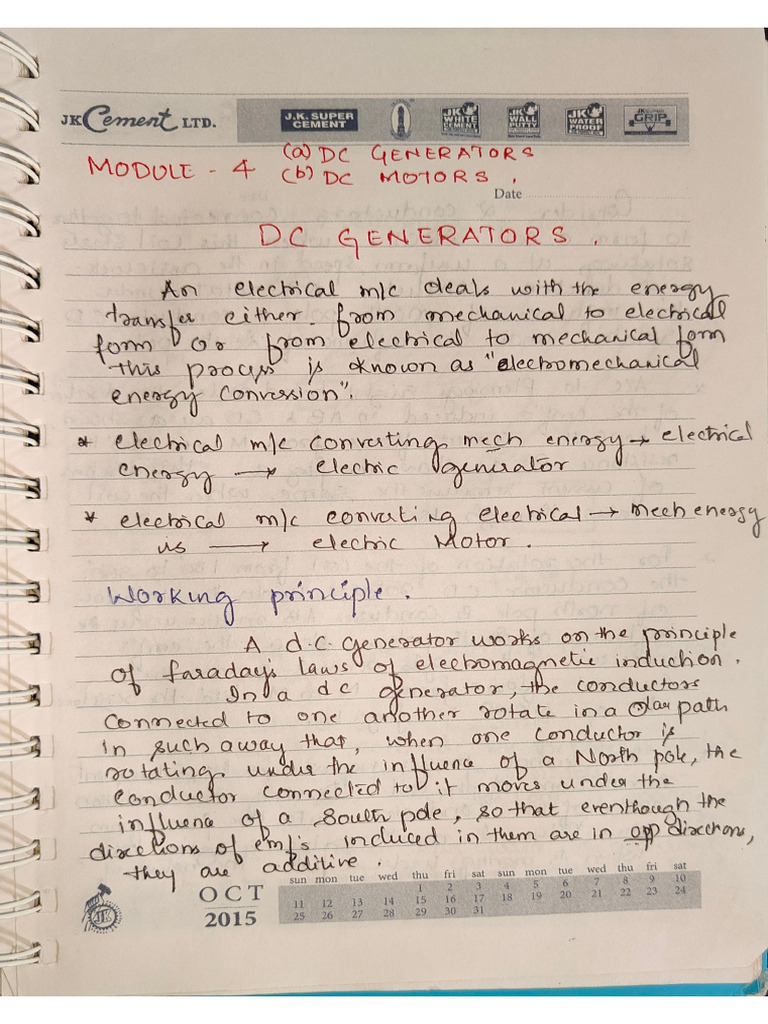 JK Cement LTD.
J.K. SUPER CEMENT
JK WHITE CEMENT
JK WALL PUTTY
JK WATER PROOF
GRIP
MODULE - 4 (a) DC GENERATORS
(b) DC MOTORS.
Date
DC GENERATORS.
An electrical m/c deals with the energy
transfer either from mechanical to electrical
form or from electrical to mechanical form
this process is known as "electromechanical
energy conversion".
* electrical m/c converting mech energy → electrical
energy → electric generator
* electrical m/c converting electrical → mech energy
is → electric Motor.
Working principle.
A d.c. generator works on the principle
of faraday's laws of electromagnetic induction.
In a dc generator, the conductors
connected to one another rotate in a Olar path
in such away that, when one conductor is
rotating under the influence of a North pole, the
conductor connected to it moves under the
influence of a South pole, so that eventhough the
directions of emf's induced in them are in opp directions,
they are additive.
OCT
2015
sun mon tue wed thu fri sat sun mon tue wed thu fri sat
1 2 3 4 5 6 7 8 9 10
11 12 13 14 15 16 17 18 19 20 21 22 23 24
25 26 27 28 29 30 31
JK